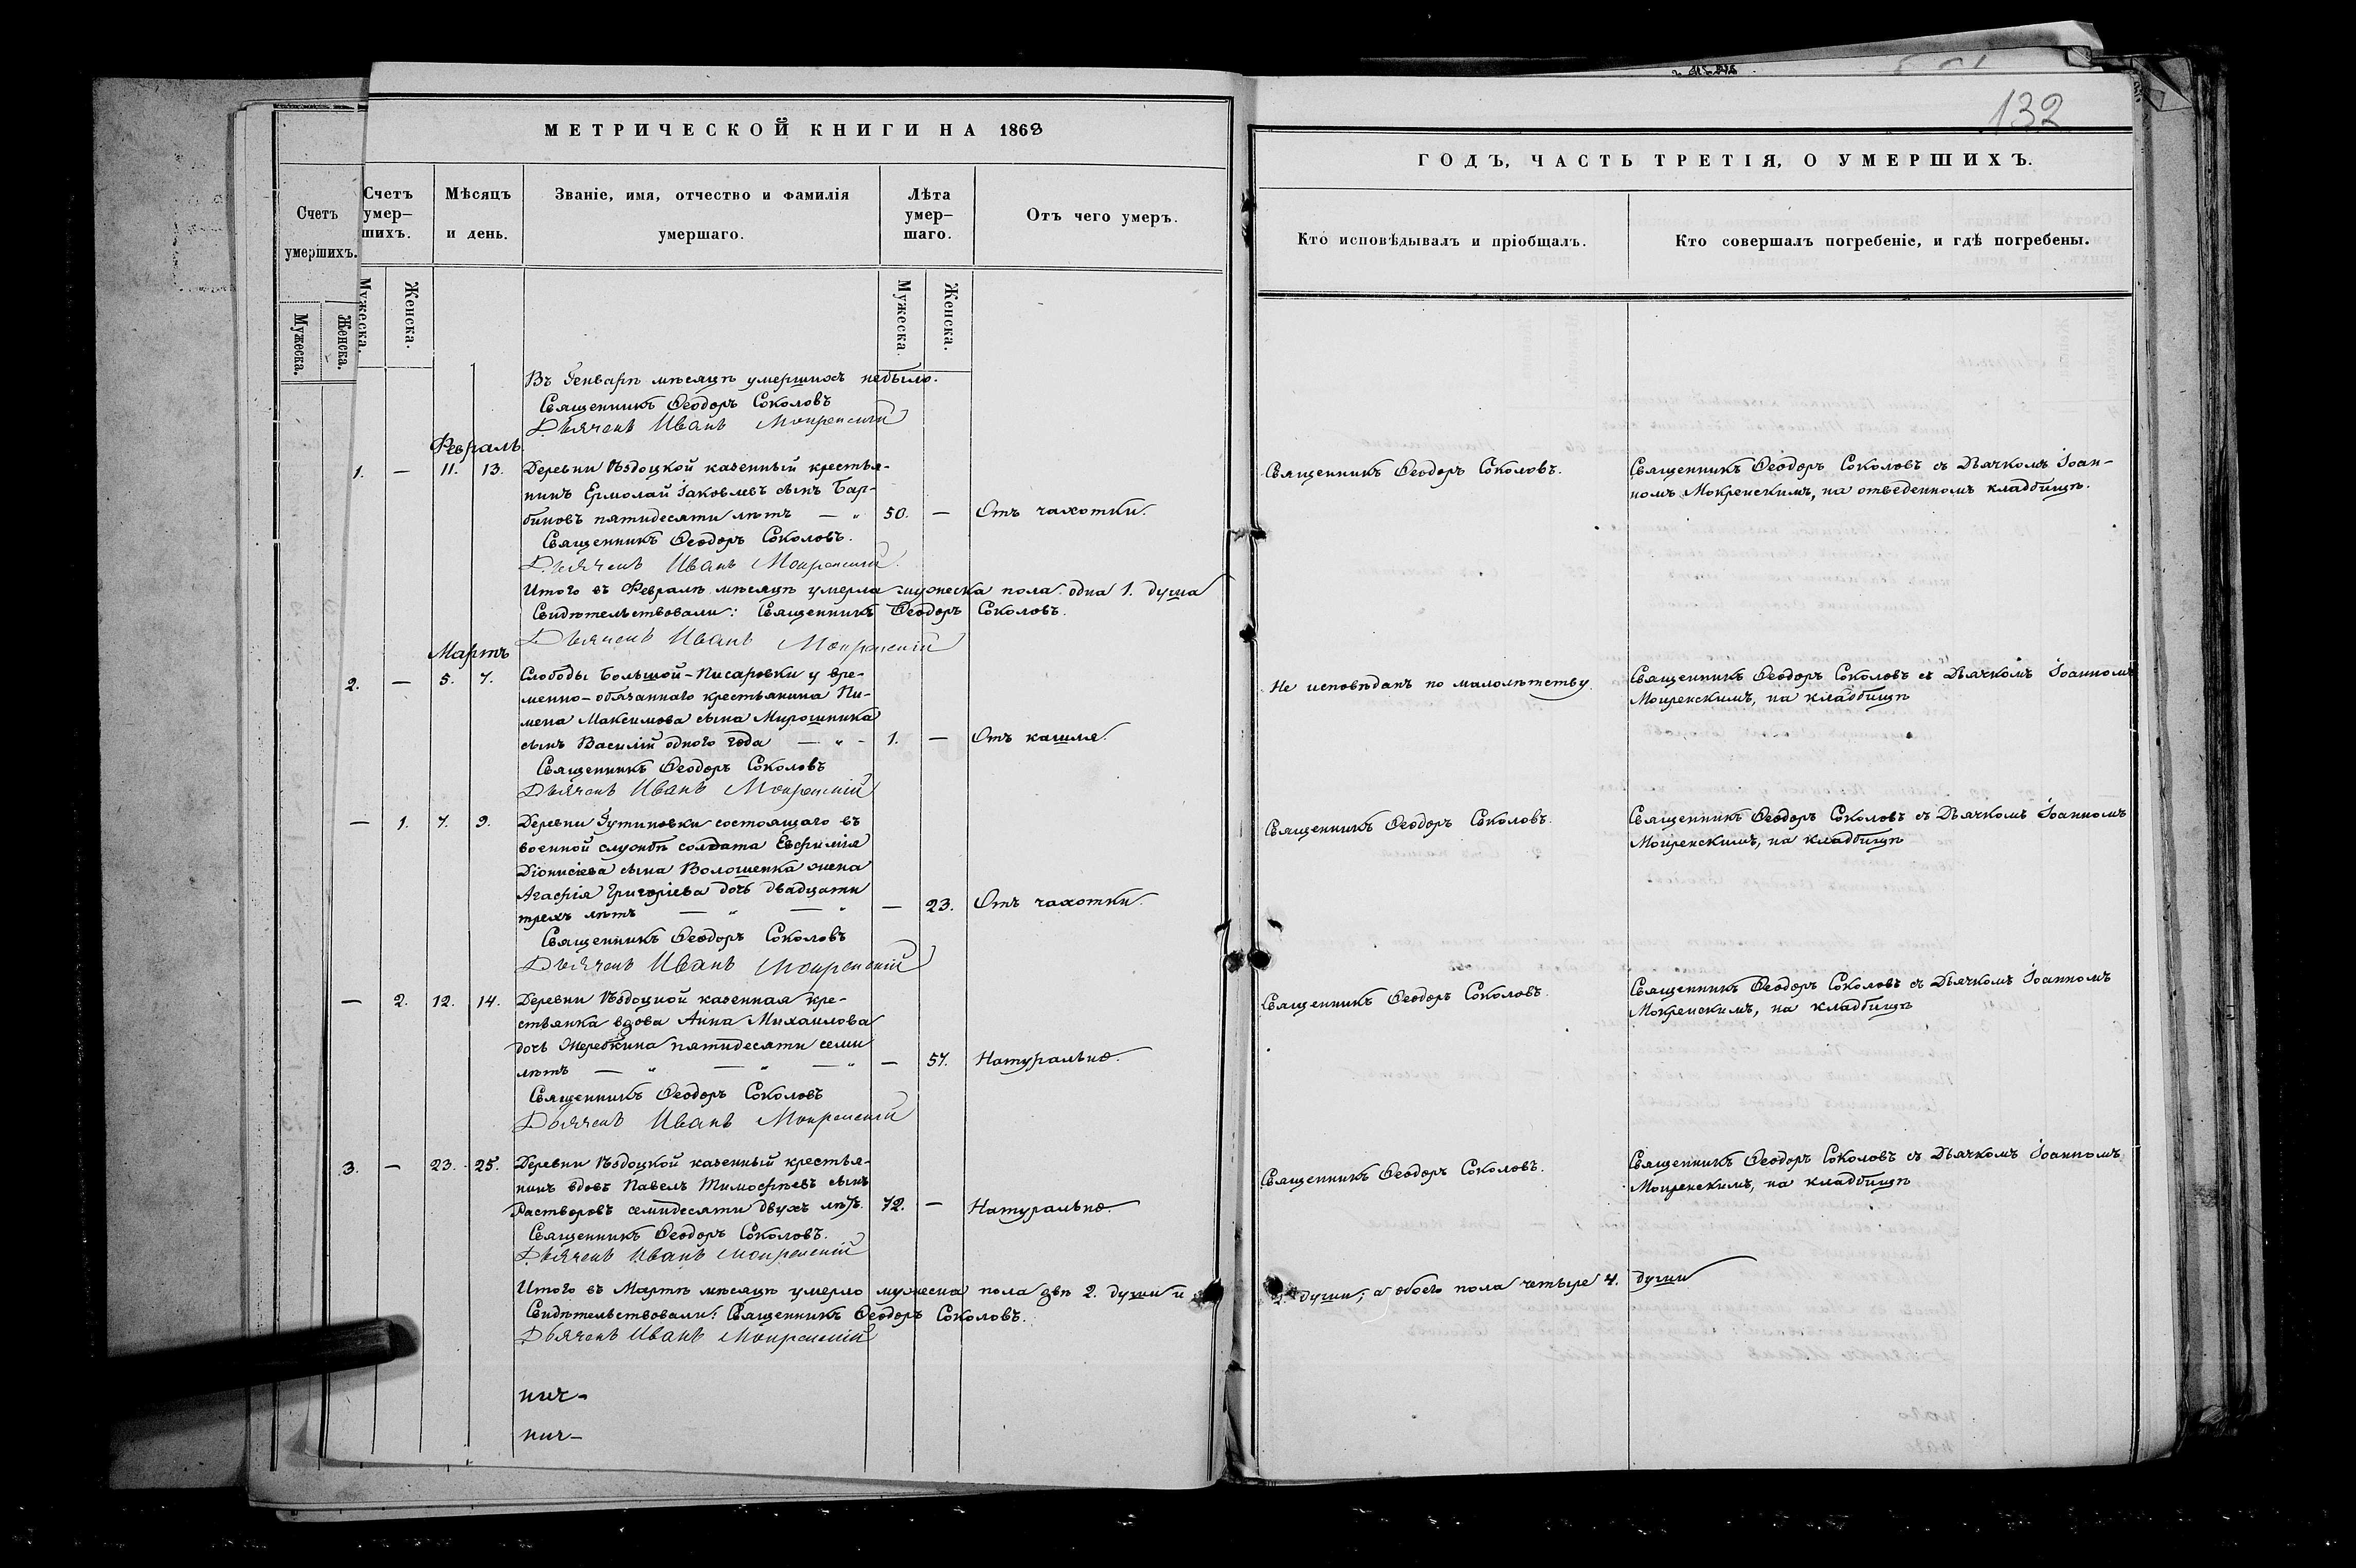 МЕТРИЧЕСКОЙ КНИГИ НА 1868
Счетъ умершихъ.
Мужеска. Женска.
Счетъ умер-
шихъ.
Мѣсяцъ
и день.
Званіе, имя, отчество и фамилія
умершаго.
Лѣта
умер-
шаго.
Отъ чего умеръ.
Мужеска. Женска.
Мужеска. Женска.
Въ Генварѣ мѣсяцѣ умершихъ небыло.
Священникъ Ѳеодоръ Соколовъ
Дьячекъ Иванъ Мокренскій
Февраль.
1. — 11. 13. Деревни Ѣздоцкой казенный крестья-
нинъ Ермолай Іаковлевъ сынъ Бар-
биновъ пятидесяти лѣтъ — „ 50. — Отъ чахотки.
Священникъ Ѳеодоръ Соколовъ.
Дьячекъ Иванъ Мокренскій.
Итого въ Февралѣ мѣсяцѣ умерла мужеска пола одна 1. душа
Свидѣтельствовали: Священникъ Ѳеодоръ Соколовъ.
Дьячекъ Иванъ Мокренскій
Мартъ
2. — 5. 7. Слободы Большой-Писаровки у вре-
менно-обязаннаго крестьянина Пи-
мена Максимова сына Мирошника
сынъ Василій одного года — „ - 1. — Отъ кашля.
Священникъ Ѳеодоръ Соколовъ
Дьячекъ Иванъ Мокренскій
— 1. 7. 9. Деревни состоящаго въ
военной службѣ солдата Евфимія
Діонисіева сына Волошенка жена
Агафія Григоріева дочь двадцати
трехъ лѣтъ — „ — „ — 23. Отъ чахотки.
Священникъ Ѳеодоръ Соколовъ
Дьячекъ Иванъ Мокренскій
— 2. 12. 14. Деревни Ѣздоцкой казенная кре-
стьянка вдова Анна Михаилова
дочь Жеребкина пятидесяти семи
лѣтъ — „ — „ — „ — 57. Натурально.
Священникъ Ѳеодоръ Соколовъ
Дьячекъ Иванъ Мокренскій
3. — 23. 25. Деревни Ѣздоцкой казенный крестья-
нинъ вдовъ Павелъ Тимофѣевъ сынъ
Растворовъ семидесяти двухъ лѣтъ. 72. — Натурально.
Священникъ Ѳеодоръ Соколовъ.
Дьячекъ Иванъ Мокренскій
Итого въ Мартѣ мѣсяцѣ умерло мужеска пола двѣ 2. души и
Свидѣтельствовали: Священникъ Ѳеодоръ Соколовъ.
Дьячекъ Иванъ Мокренскій
нич-
нич-
132
ГОДЪ, ЧАСТЬ ТРЕТІЯ, О УМЕРШИХЪ.
Кто исповѣдывалъ и пріобщалъ.
Кто совершалъ погребеніе, и гдѣ погребены.
Священникъ Ѳеодоръ Соколовъ.
Священникъ Ѳеодоръ Соколовъ съ Дьячкомъ Іоан-
номъ Мокренскимъ, на отведенномъ кладбищѣ.
Не исповѣданъ по малолѣтству.
Священникъ Ѳеодоръ Соколовъ съ Дьячкомъ Іоанномъ
Мокренскимъ, на кладбищѣ
Священникъ Ѳеодоръ Соколовъ.
Священникъ Ѳеодоръ Соколовъ съ Дьячкомъ Іоанномъ
Мокренскимъ, на кладбищѣ
Священникъ Ѳеодоръ Соколовъ.
Священникъ Ѳеодоръ Соколовъ съ Дьячкомъ Іоанномъ
Мокренскимъ, на кладбищѣ
Священникъ Ѳеодоръ Соколовъ.
Священникъ Ѳеодоръ Соколовъ съ Дьячкомъ Іоанномъ
Мокренскимъ, на кладбищѣ
2. души, а обоего пола четыре 4. души